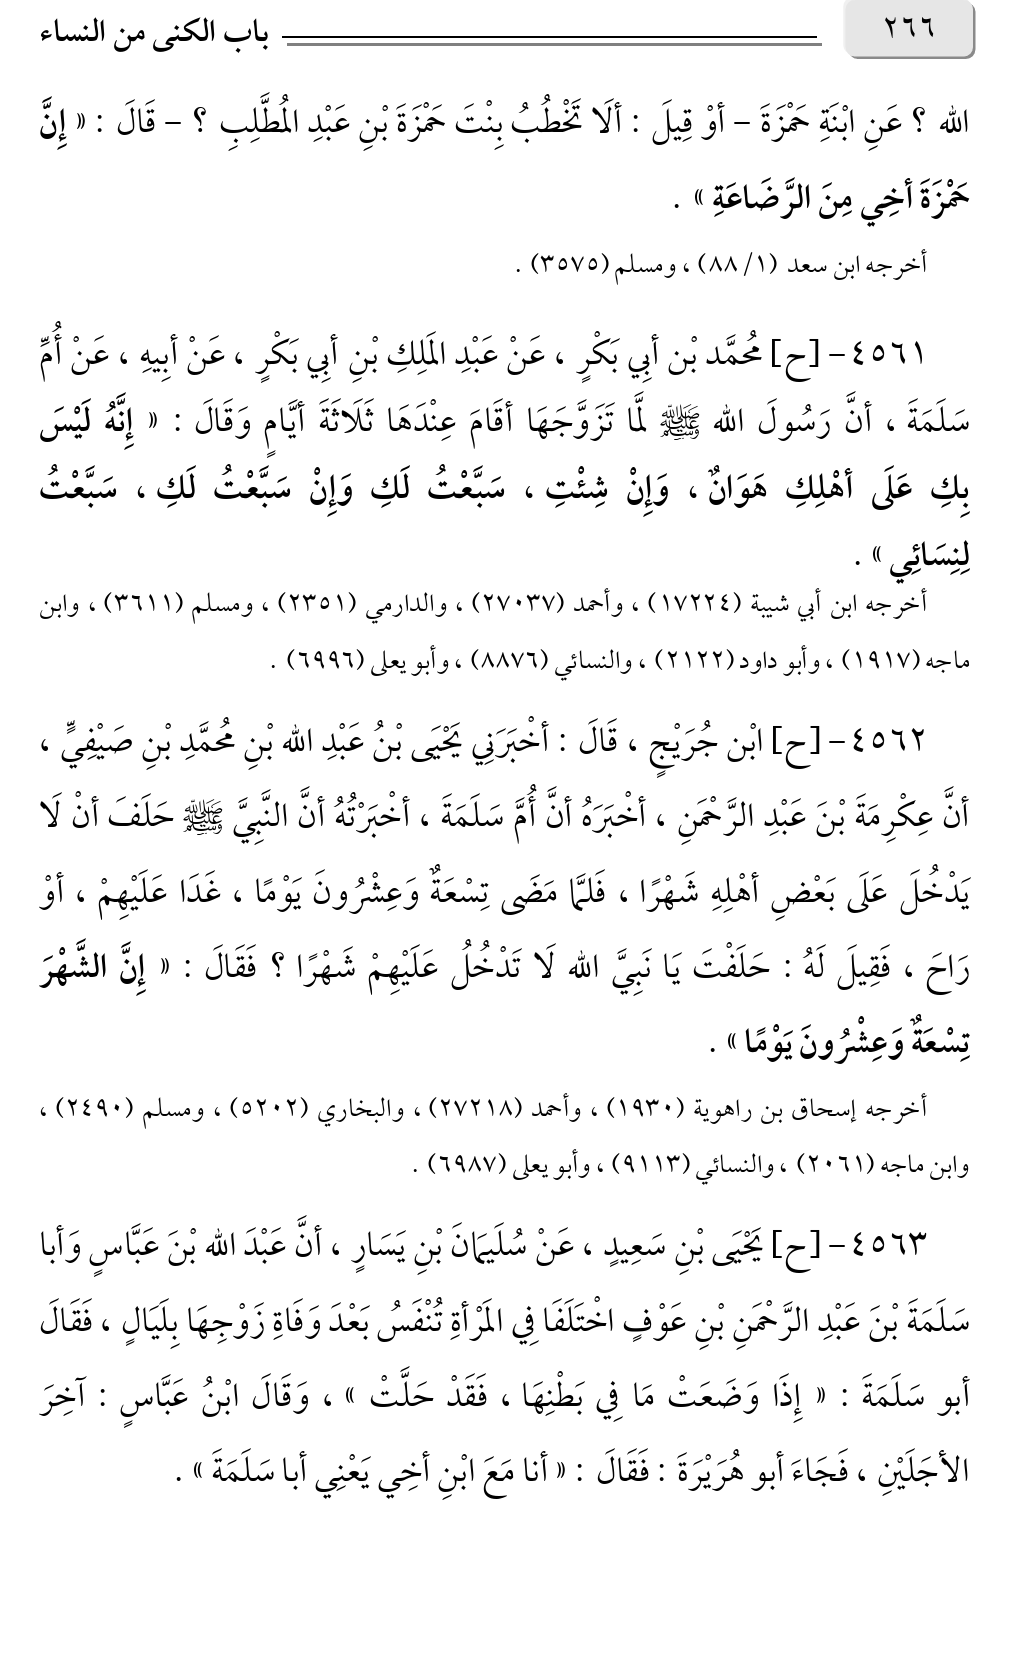 ٢٦٦ باب الكنى من النساء
الله ؟ عَنِ ابْنَةِ حَمْزَةَ – أوْ قِيلَ : ألَا تَخْطُبُ بِنْتَ حَمْزَةَ بْنِ عَبْدِ المُطَّلِبِ ؟ – قَالَ : « إِنَّ
حَمْزَةَ أخِي مِنَ الرَّضَاعَةِ » .
أخرجه ابن سعد (٨٨/١) ، ومسلم (٣٥٧٥) .
٤٥٦١– [ح] مُحمَّد بْن أبِي بَكْرٍ ، عَنْ عَبْدِ المَلِكِ بْنِ أبِي بَكْرٍ ، عَنْ أبِيهِ ، عَنْ أُمِّ
سَلَمَةَ ، أنَّ رَسُولَ الله ﷺ لَمَّا تَزَوَّجَهَا أقَامَ عِنْدَهَا ثَلَاثَةَ أيَّامٍ وَقَالَ : « إِنَّهُ لَيْسَ
بِكِ عَلَى أهْلِكِ هَوَانٌ ، وَإِنْ شِئْتِ ، سَبَّعْتُ لَكِ وَإِنْ سَبَّعْتُ لَكِ ، سَبَّعْتُ
لِنِسَائِي » .
أخرجه ابن أبي شيبة (١٧٢٢٤) ، وأحمد (٢٧٠٣٧) ، والدارمي (٢٣٥١) ، ومسلم (٣٦١١) ، وابن
ماجه (١٩١٧) ، وأبو داود (٢١٢٢) ، والنسائي (٨٨٧٦) ، وأبو يعلى (٦٩٩٦) .
٤٥٦٢– [ح] ابْن جُرَيْجٍ ، قَالَ : أخْبَرَنِي يَحْيَى بْنُ عَبْدِ الله بْنِ مُحمَّدِ بْنِ صَيْفِيٍّ ،
أنَّ عِكْرِمَةَ بْنَ عَبْدِ الرَّحْمَنِ ، أخْبَرَهُ أنَّ أُمَّ سَلَمَةَ ، أخْبَرَتْهُ أنَّ النَّبِيَّ ﷺ حَلَفَ أنْ لَا
يَدْخُلَ عَلَى بَعْضِ أهْلِهِ شَهْرًا ، فَلَمَّا مَضَى تِسْعَةٌ وَعِشْرُونَ يَوْمًا ، غَدَا عَلَيْهِمْ ، أوْ
رَاحَ ، فَقِيلَ لَهُ : حَلَفْتَ يَا نَبِيَّ الله لَا تَدْخُلُ عَلَيْهِمْ شَهْرًا ؟ فَقَالَ : « إِنَّ الشَّهْرَ
تِسْعَةٌ وَعِشْرُونَ يَوْمًا » .
أخرجه إسحاق بن راهوية (١٩٣٠) ، وأحمد (٢٧٢١٨) ، والبخاري (٥٢٠٢) ، ومسلم (٢٤٩٠) ،
وابن ماجه (٢٠٦١) ، والنسائي (٩١١٣) ، وأبو يعلى (٦٩٨٧) .
٤٥٦٣– [ح] يَحْيَى بْنِ سَعِيدٍ ، عَنْ سُلَيمَانَ بْنِ يَسَارٍ ، أنَّ عَبْدَ الله بْنَ عَبَّاسٍ وَأبا
سَلَمَةَ بْنَ عَبْدِ الرَّحْمَنِ بْنِ عَوْفٍ اخْتَلَفَا فِي المَرْأةِ تُنْفَسُ بَعْدَ وَفَاةِ زَوْجِهَا بِلَيَالٍ ، فَقَالَ
أبو سَلَمَةَ : « إِذَا وَضَعَتْ مَا فِي بَطْنِهَا ، فَقَدْ حَلَّتْ » ، وَقَالَ ابْنُ عَبَّاسٍ : آخِرَ
الأجَلَيْنِ ، فَجَاءَ أبو هُرَيْرَةَ : فَقَالَ : « أنا مَعَ ابْنِ أخِي يَعْنِي أبا سَلَمَةَ » .